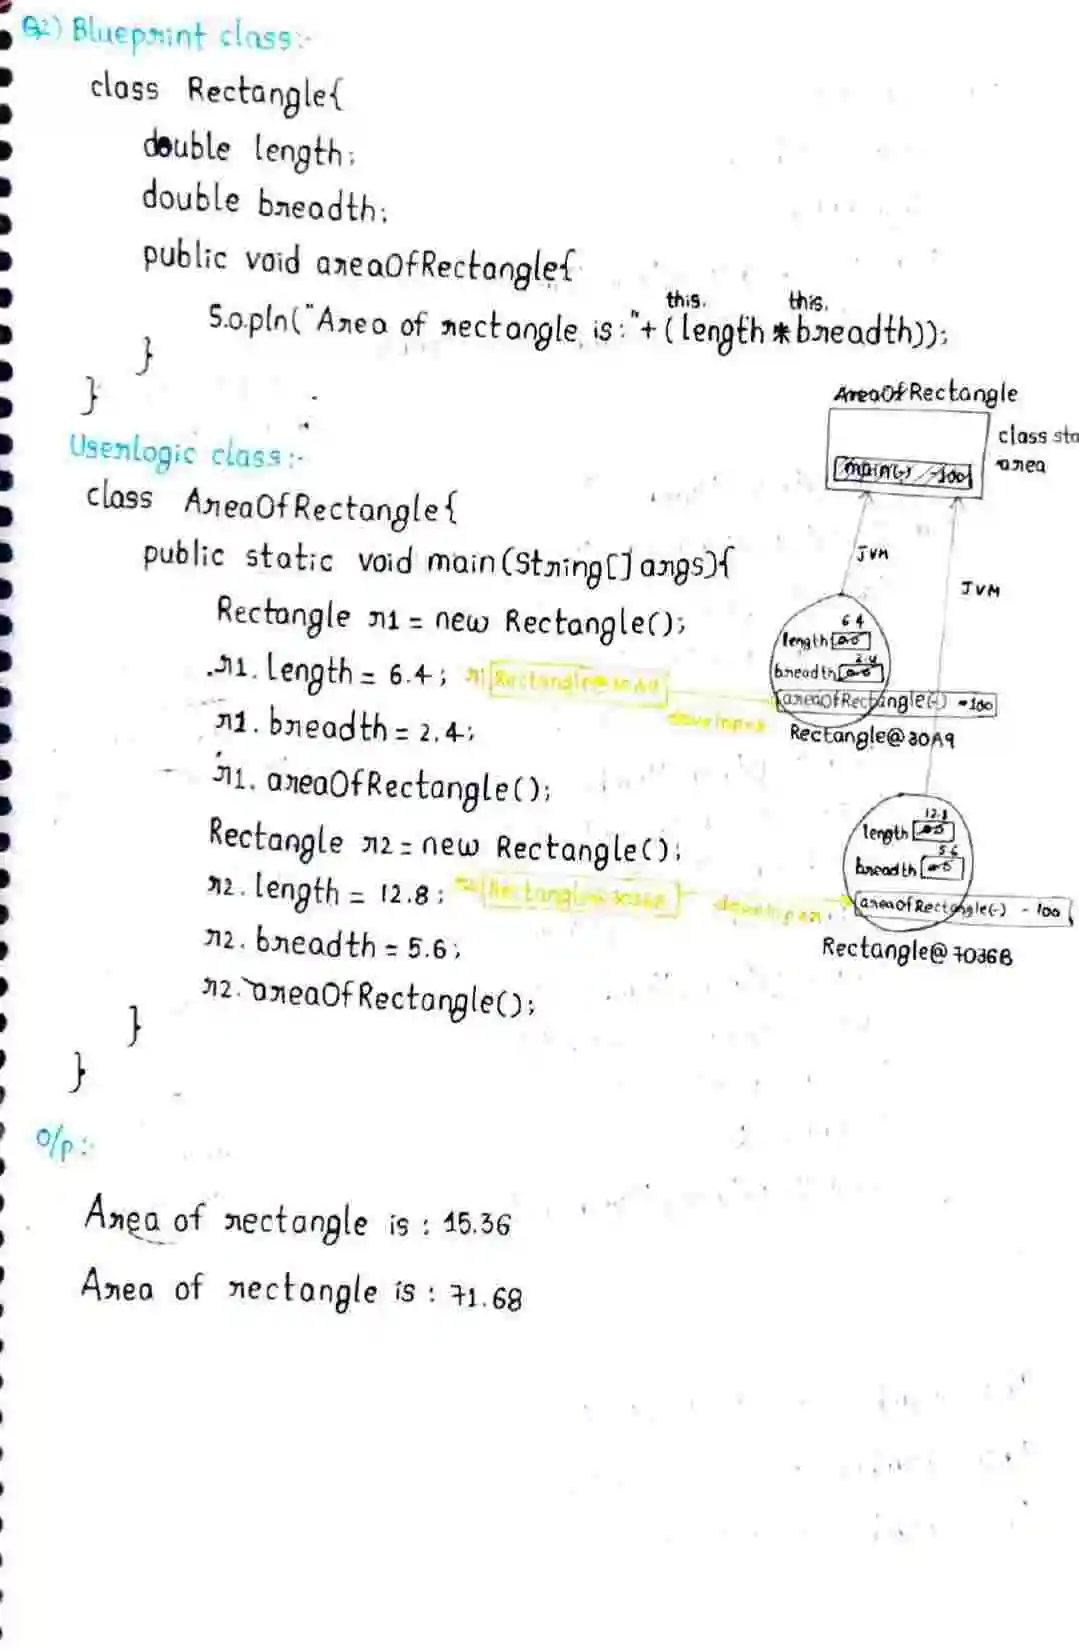 Q2) Blueprint class:-
class Rectangle{
double length;
double breadth;
public void areaOfRectangle{
this. this.
S.o.pln("Area of rectangle is:"+(length*breadth));
}
}
Userlogic class:-
class AreaOfRectangle{
public static void main(String[] args){
Rectangle r1 = new Rectangle();
r1. length = 6.4;
r1. breadth = 2.4;
r1. areaOfRectangle();
Rectangle r2 = new Rectangle();
r2. length = 12.8;
r2. breadth = 5.6;
r2. areaOfRectangle();
}
}
AreaOfRectangle
class sta
area
main(-) -100
JVM
JVM
6.4
length
2.4
breadth
areaOfRectangle(-) -100
Rectangle@30A9
r1 Rectangle@30A9
developer
12.8
length
5.6
breadth
areaofRectangle(-) - 100
Rectangle@7036B
developer
O/p:-
Area of rectangle is : 15.36
Area of rectangle is : 71.68